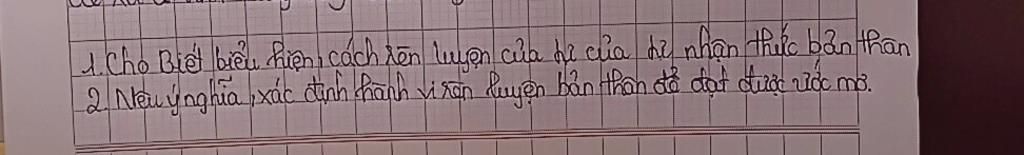 1. Cho Biết biểu hiện, cách rèn luyện của hs của hs nhận thức bản thân
2. Nêu ý nghĩa, xác định hành vi rèn luyện bản thân để đạt được ước mơ.